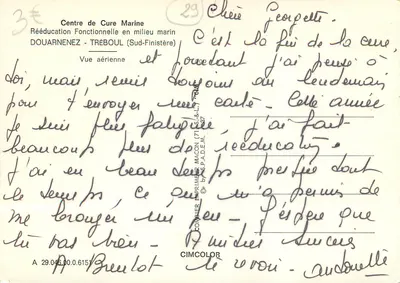 3€
29
Centre de Cure Marine
Rééducation Fonctionnelle en milieu marin
DOUARNENEZ - TREBOUL (Sud-Finistère)
Vue aérienne
Chère Georgette.
C'est la fin de la cure,
et pourtant j'ai pensé à
toi, mais remis toujours au lendemain
pour t'envoyer une carte. Cette année
je suis plus fatiguée, j'ai fait
beaucoup plus de rééducation.
J'ai eu beau temps presque tout
le temps, ce qui m'a permis de
me bronzer un peu. J'espère que
tu vas bien. Amitiés sincères
A Bientôt le revoir. Antoinette
CIMCOLOR
A 29.046.00.0.6151